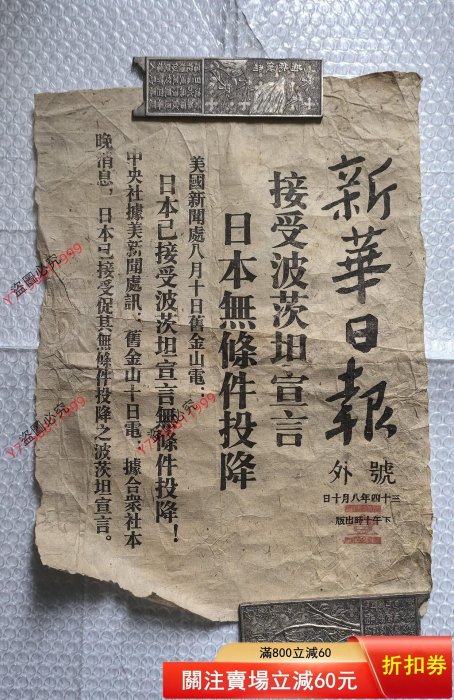 新華日報
號外
三十四年八月十日
下午十時出版
接受波茨坦宣言
日本無條件投降
美國新聞處八月十日舊金山電：
日本已接受波茨坦宣言無條件投降！
中央社據美新聞處訊：舊金山十日電：據合衆社本
晚消息，日本已接受促其無條件投降之波茨坦宣言。
盜圖必究
盜圖必究
盜圖必究
滿800立減60
關注賣場立減60元
折扣券